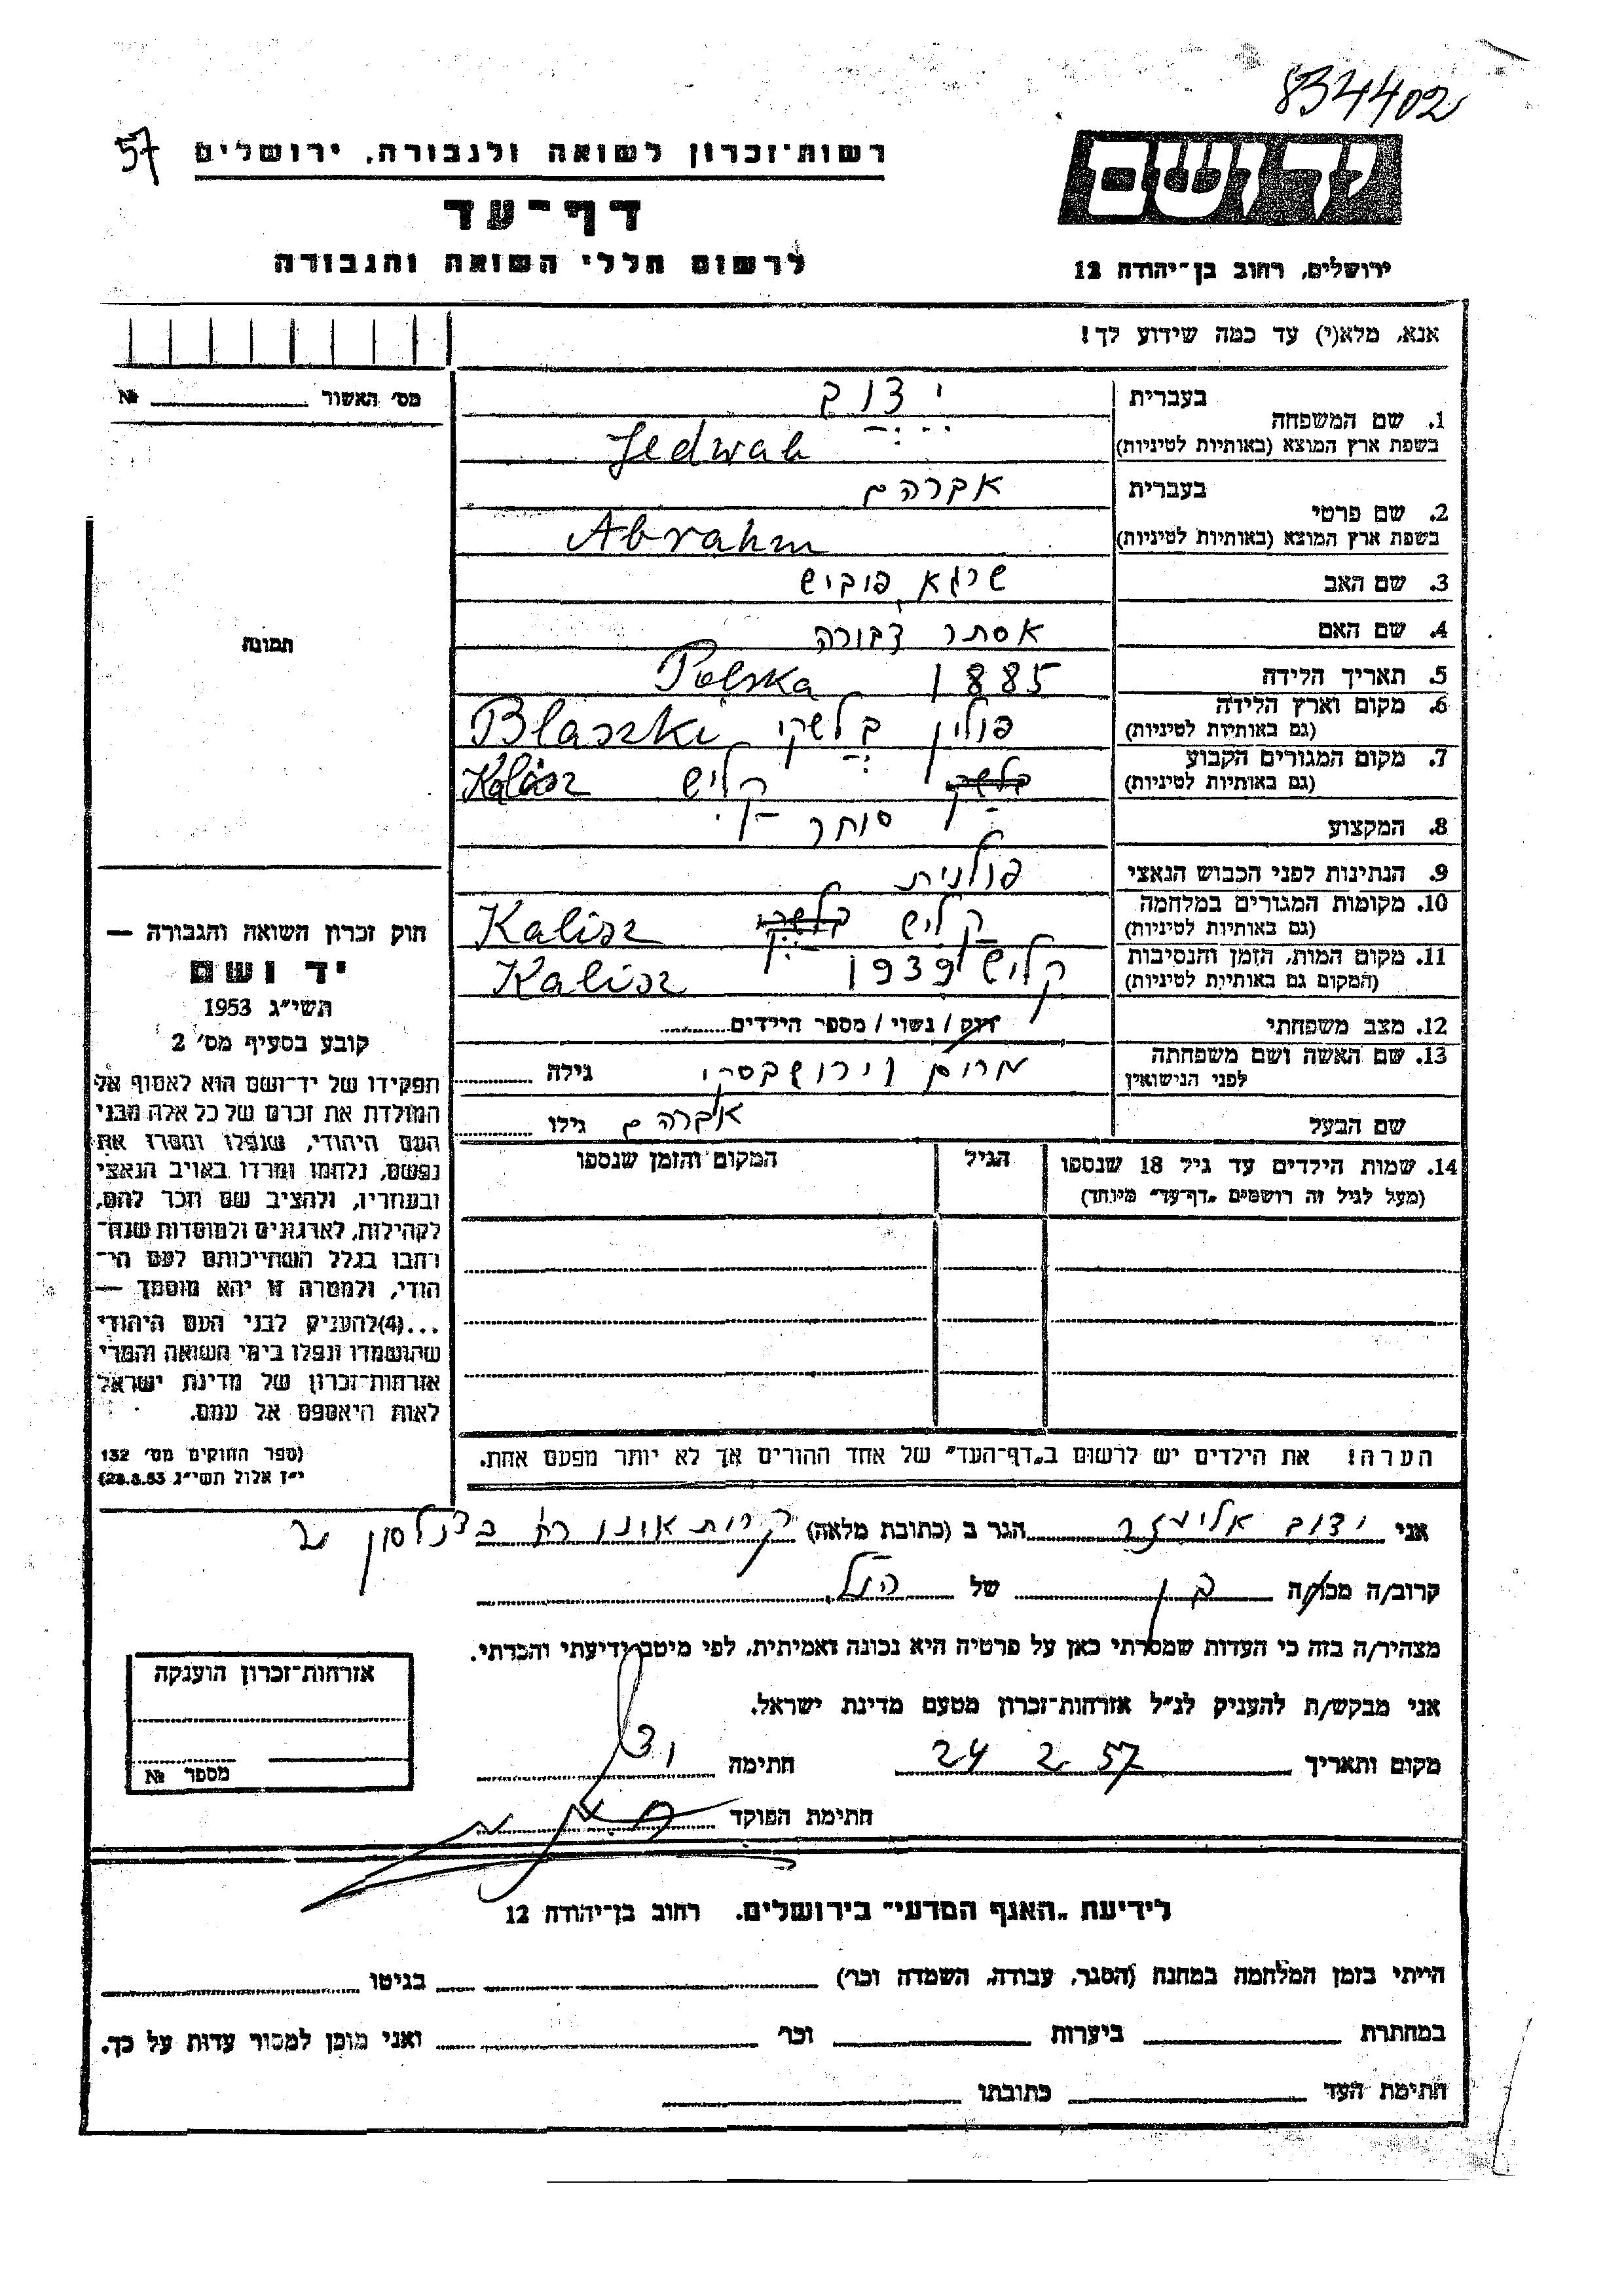 834402
57
רשות־זכרון לשואה ולגבורה, ירושלים
דף־עד
לרשום חללי השואה והגבורה
יד ושם
ירושלים, רחוב בן־יהודה 12
אנא, מלא(י) עד כמה שידוע לך!
מס׳ האשור № 
תמונה
בעברית ידוב
1. שם המשפחה
בשפת ארץ המוצא (באותיות לטיניות) Jedwab
בעברית אברהם
2. שם פרטי
בשפת ארץ המוצא (באותיות לטיניות) Abrahm
3. שם האב שרגא פוביש
4. שם האם אסתר דבורה
5. תאריך הלידה 1885 Polska
6. מקום וארץ הלידה פולין בלשקי Blaszki
(גם באותיות לטיניות)
7. מקום המגורים הקבוע קליש Kalisz
(גם באותיות לטיניות)
8. המקצוע סוחר
9. הנתינות לפני הכבוש הנאצי פולנית
10. מקומות המגורים במלחמה קליש Kalisz
(גם באותיות לטיניות)
11. מקום המות, הזמן והנסיבות קליש 1939 Kalisz
(המקום גם באותיות לטיניות)
12. מצב משפחתי רווק / נשוי / מספר הילדים
13. שם האשה ושם משפחתה מרים גילה
לפני הנישואין
שם הבעל אברהם גילו
14. שמות הילדים עד גיל 18 שנספו הגיל המקום והזמן שנספו
(מעל לגיל זה רושמים „דף־עד״ מיוחד)
הערה! את הילדים יש לרשום ב„דף־העד״ של אחד ההורים אך לא יותר מפעם אחת.
חוק זכרון השואה והגבורה —
יד ושם
תשי״ג 1953
קובע בסעיף מס׳ 2
תפקידו של יד־ושם הוא לאסוף אל
המולדת את זכרם של כל אלה מבני
העם היהודי, שנפלו ומסרו את
נפשם, נלחמו ומרדו באויב הנאצי
ובעוזריו, ולהציב שם וזכר להם,
לקהילות, לארגונים ולמוסדות שנח־
רחבו בגלל השתייכותם לעם הי־
הודי, ולמטרה זו יהא מוסמך —
...(4)להעניק לבני העם היהודי
שהושמדו ונפלו בימי השואה והמרי
אזרחות־זכרון של מדינת ישראל
לאות היאספם אל עמם.
(ספר החוקים מס׳ 132
י״ז אלול תשי״ג 28.8.53)
אני ידוב אליעזר הגר ב (כתובת מלאה) קרית אונו רח
קרוב/ה מכר/ה בן של הנ״ל
מצהיר/ה בזה כי העדות שמסרתי כאן על פרטיה היא נכונה ואמיתית, לפי מיטב ידיעתי והכרתי.
אני מבקש/ת להעניק לנ״ל אזרחות־זכרון מטעם מדינת ישראל.
מקום ותאריך 24 2 57 חתימה
חתימת הפוקד
אזרחות־זכרון הוענקה
מספר №
לידיעת „האגף המדעי״ בירושלים, רחוב בן־יהודה 12
הייתי בזמן המלחמה במחנה (הסגר, עבודה, השמדה וכר׳) בגיטו
במחתרת ביערות וכר׳ ואני מוכן למסור עדות על כך.
חתימת העד כתובתו